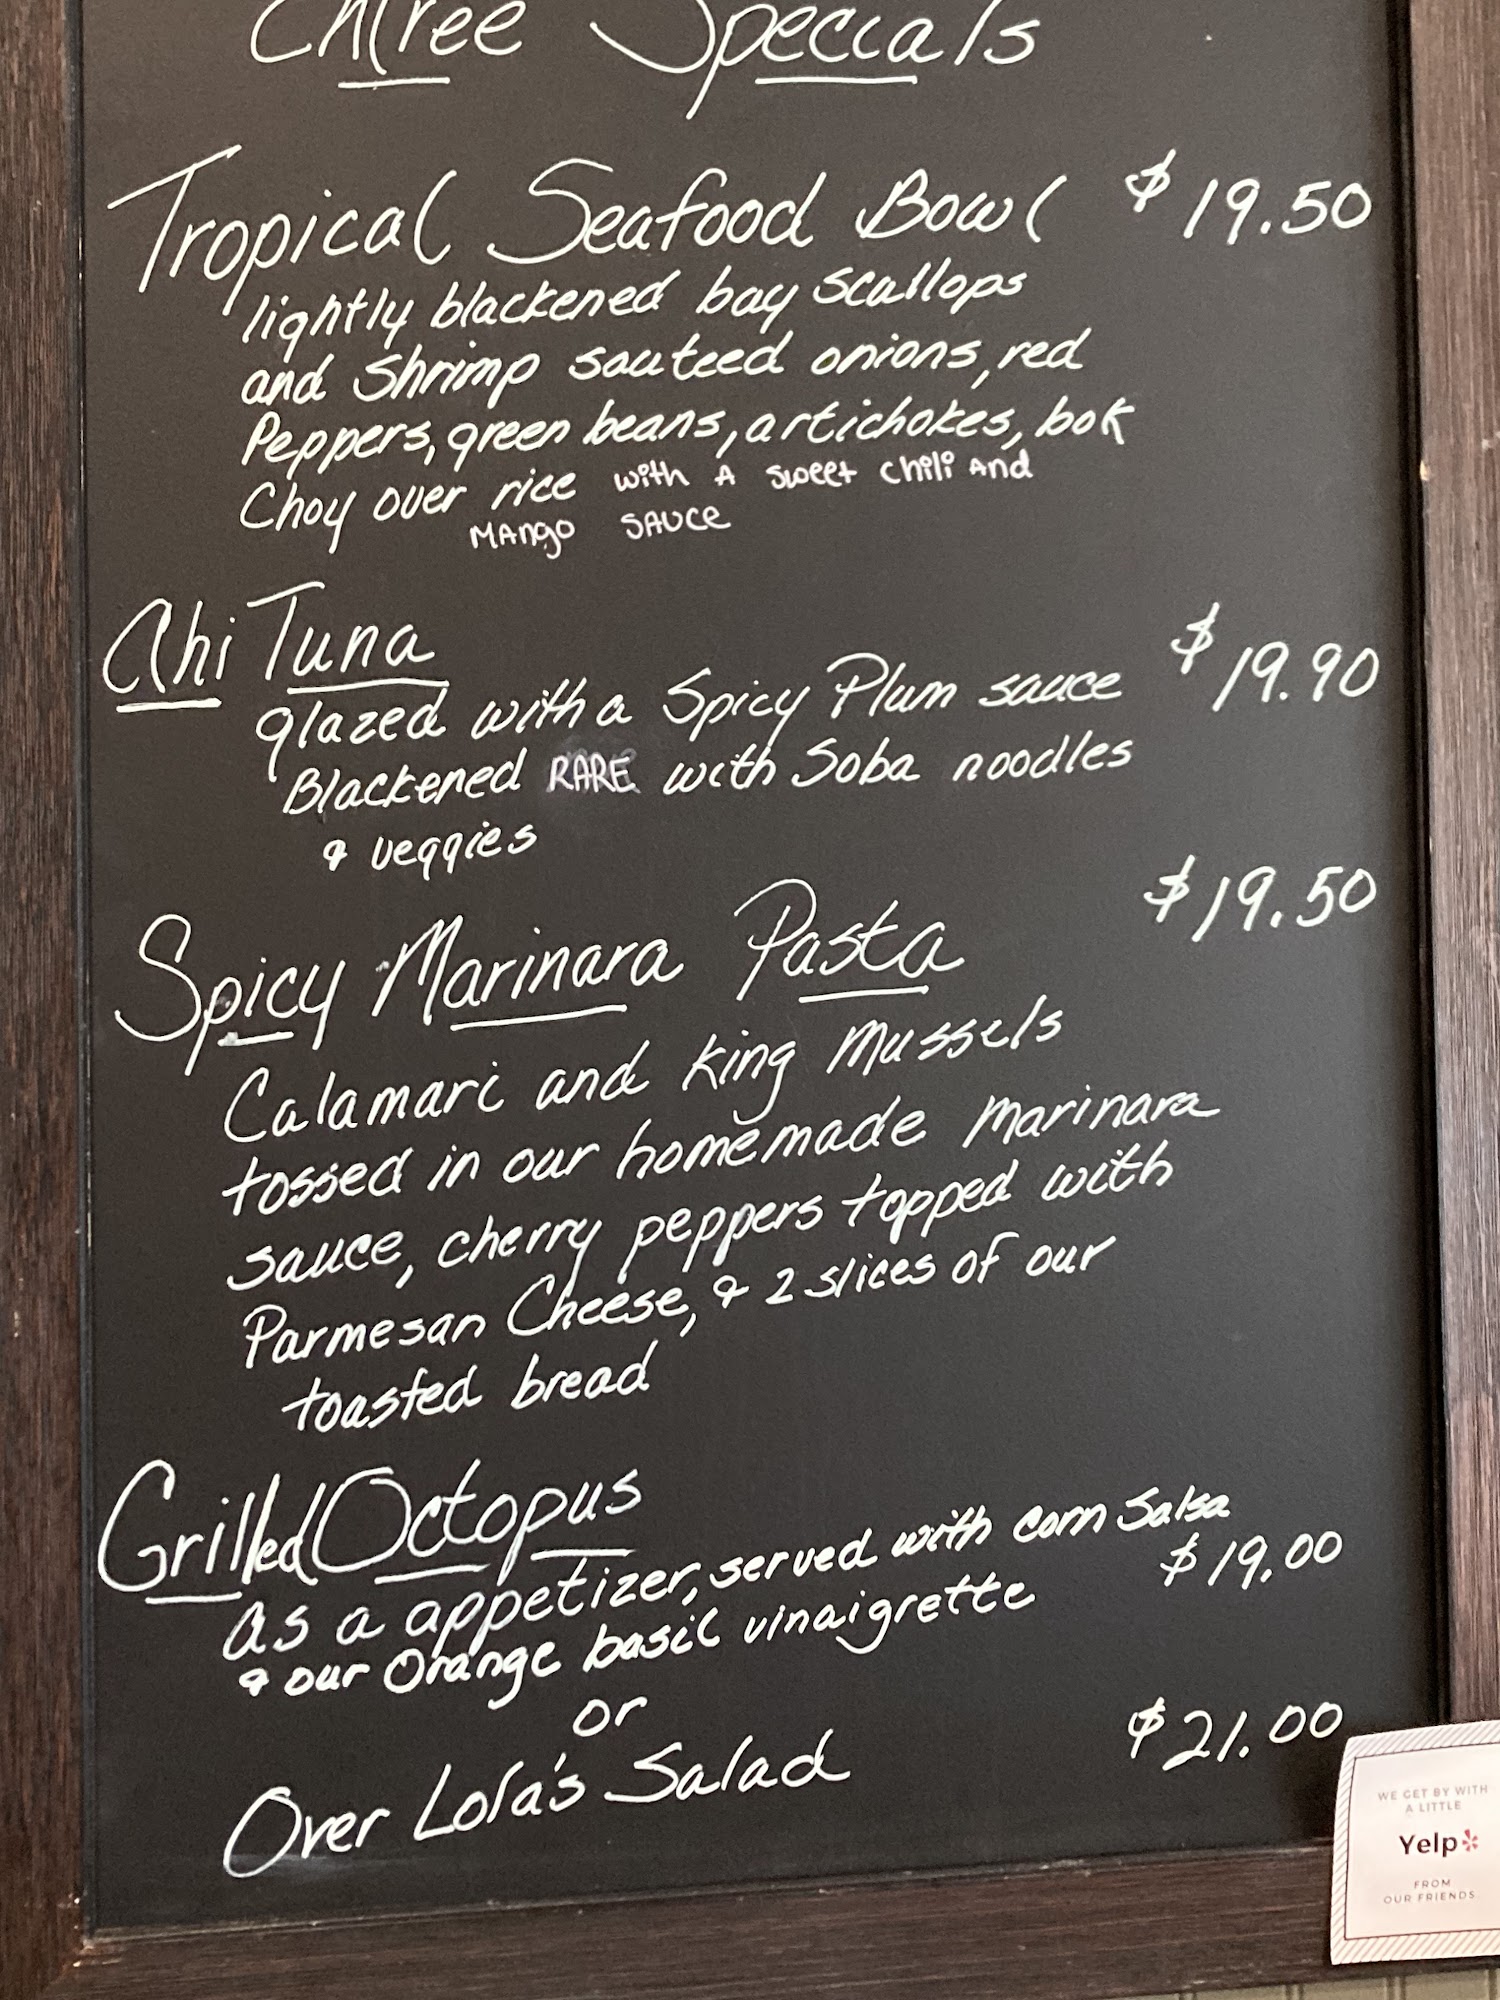 Entree Specials
Tropical Seafood Bowl $19.50
lightly blackened bay scallops
and shrimp sauteed onions, red
Peppers, green beans, artichokes, bok
Choy over rice with A sweet chili And
MAngo SAUCe
Ahi Tuna
glazed with a Spicy Plum sauce $19.90
Blackened RARE with Soba noodles
& veggies
Spicy Marinara Pasta $19.50
Calamari and king Mussels
tossed in our homemade Marinara
sauce, cherry peppers topped with
Parmesan Cheese, & 2 slices of our
toasted bread
Grilled Octopus
as a appetizer, served with corn Salsa
& our Orange basil vinaigrette $19.00
or
Over Lola's Salad $21.00
WE GET BY WITH
A LITTLE
Yelp
FROM
OUR FRIENDS